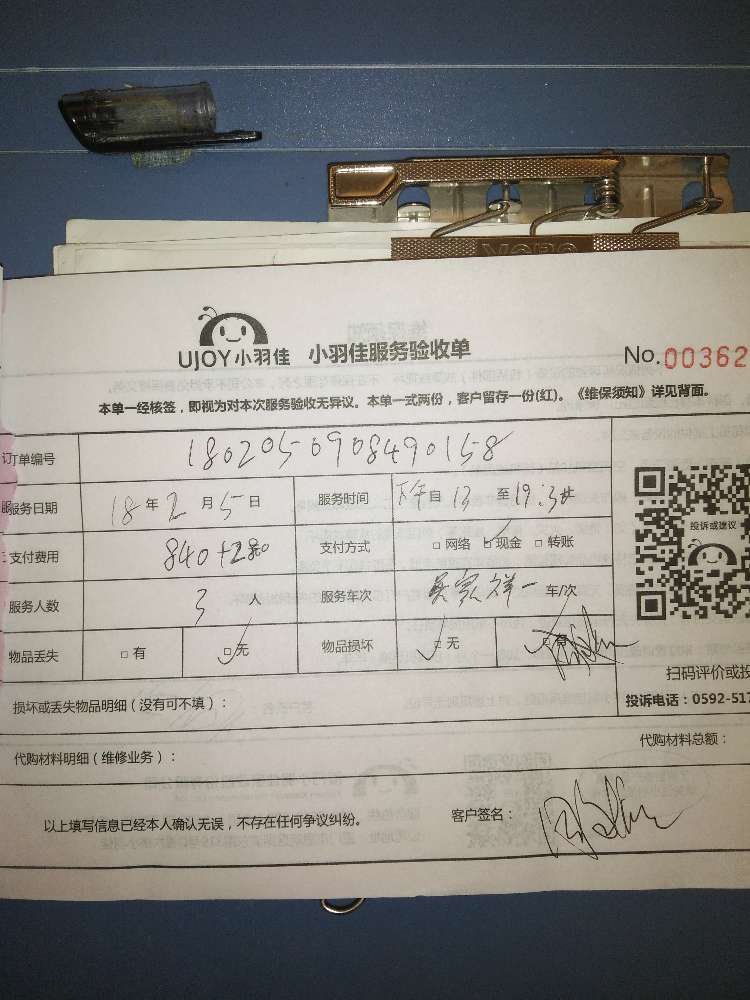 UJOY小羽佳 小羽佳服务验收单 No.00362
本单一经核签，即视为对本次服务验收无异议。本单一式两份，客户留存一份(红)。《维保须知》详见背面。
订单编号 1802050908490158
服务日期 18 年 2 月 5 日 服务时间 下午自 13 至 19:30
支付费用 840+280 支付方式 □ 网络 ☑ 现金 □ 转账
服务人数 3 人 服务车次 吴家祥一 车/次
物品丢失 □ 有 ☑ 无 物品损坏 ☑ 无 ☑ 有
投诉或建议
扫码评价或投
损坏或丢失物品明细（没有可不填）：
投诉电话：0592-517
代购材料明细（维修业务）：
代购材料总额：
以上填写信息已经本人确认无误，不存在任何争议纠纷。 客户签名：